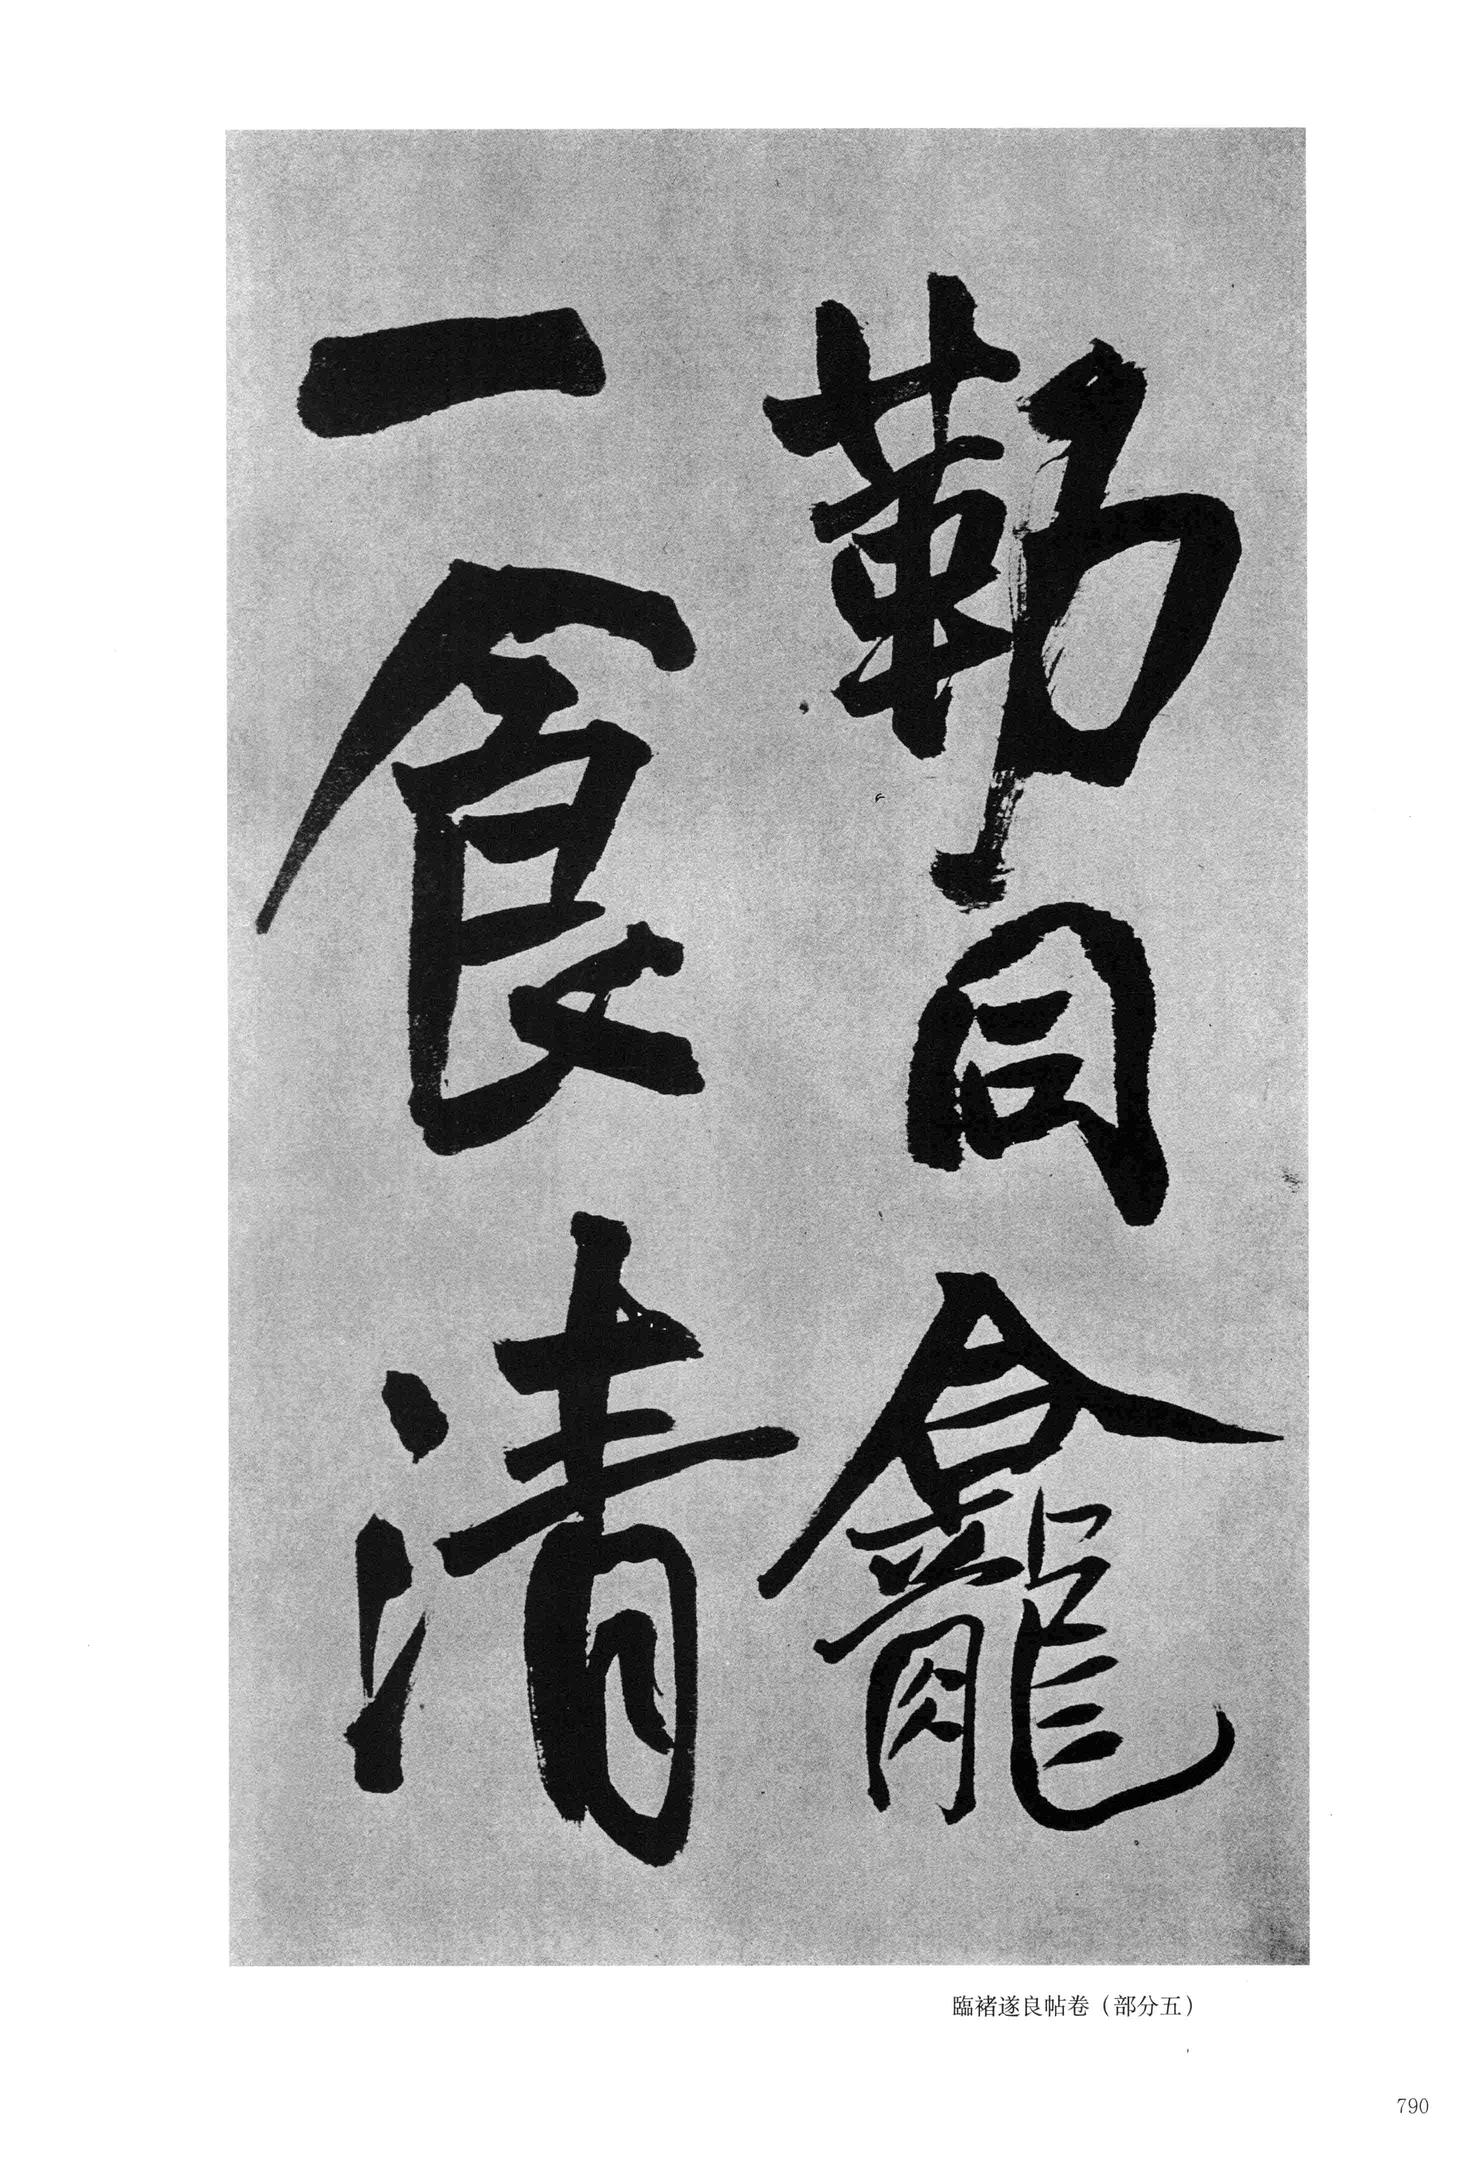 勒同龕
一食清
臨褚遂良帖卷（部分五）
790